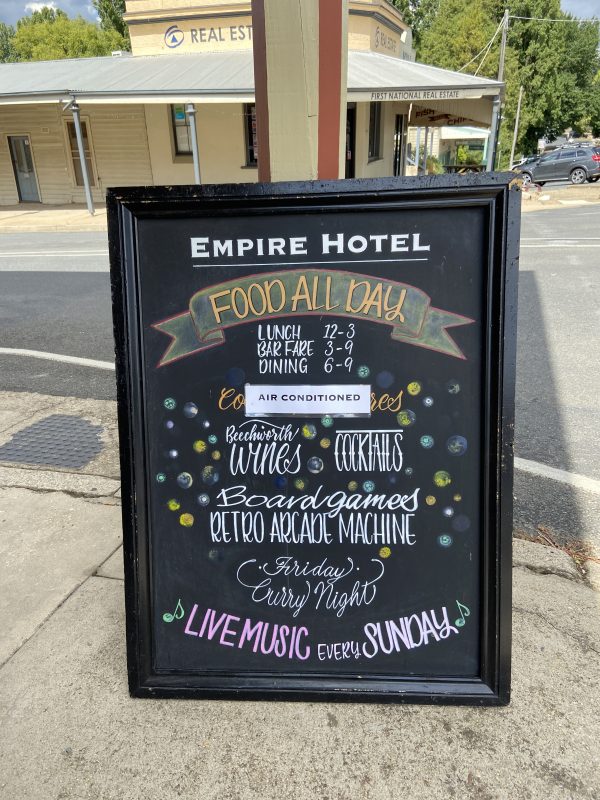 REAL EST
FIRST NATIONAL REAL ESTATE
FISH
CHIPS
EMPIRE HOTEL
FOOD ALL DAY
LUNCH 12-3
BAR FARE 3-9
DINING 6-9
AIR CONDITIONED
Beechworth
Wines
COCKTAILS
Board games
RETRO ARCADE MACHINE
Friday
Curry Night
LIVE MUSIC EVERY SUNDAY